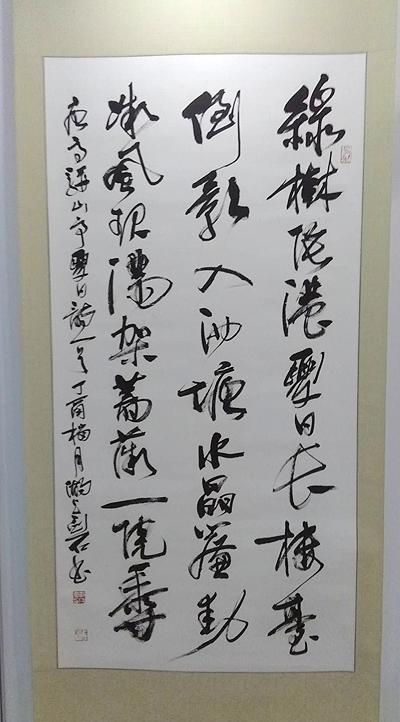 綠樹陰濃夏日長樓臺
倒影入池塘水晶簾動
微風起滿架薔薇一院香
唐高駢山亭夏日詩一首丁酉月石書